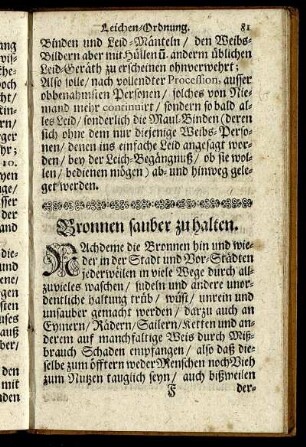 Leichen-Ordnung. 81
Binden und Leid-Mänteln / den Weibs-
Bildern aber mit Hüllen ū. anderm üblichen
Leid-Geräth zu erscheinen ohnverwehrt:
Also solle / nach vollendter Procession, ausser
obbenahmsten Personen / solches von Nie-
mand mehr continuirt / sondern so bald al-
les Leid / sonderlich die Maul-Binden (deren
sich ohne dem nur diejenige Weibs-Perso-
nen / denen ins einfache Leid angesagt wor-
den / bey der Leich-Begängnuß / ob sie wol-
len / bedienen mögen) ab- und hinweg gele-
get werden.
Bronnen sauber zu halten.
NAchdeme die Bronnen hin und wie-
der in der Stadt und Vor-Städten
jederweilen in viele Wege durch all-
zuvieles waschen / sudeln und andere unor-
dentliche haltung trüb / wüst / unrein und
unsauber gemacht werden / darzu auch an
Eymern / Rädern / Sailern / Ketten und an-
derem auf manchfaltige Weis durch Miß-
brauch Schaden empfangen / also daß die-
selbe zum öfftern weder Menschen noch Vieh
zum Nutzen tauglich seyn / auch bißweilen
F der-